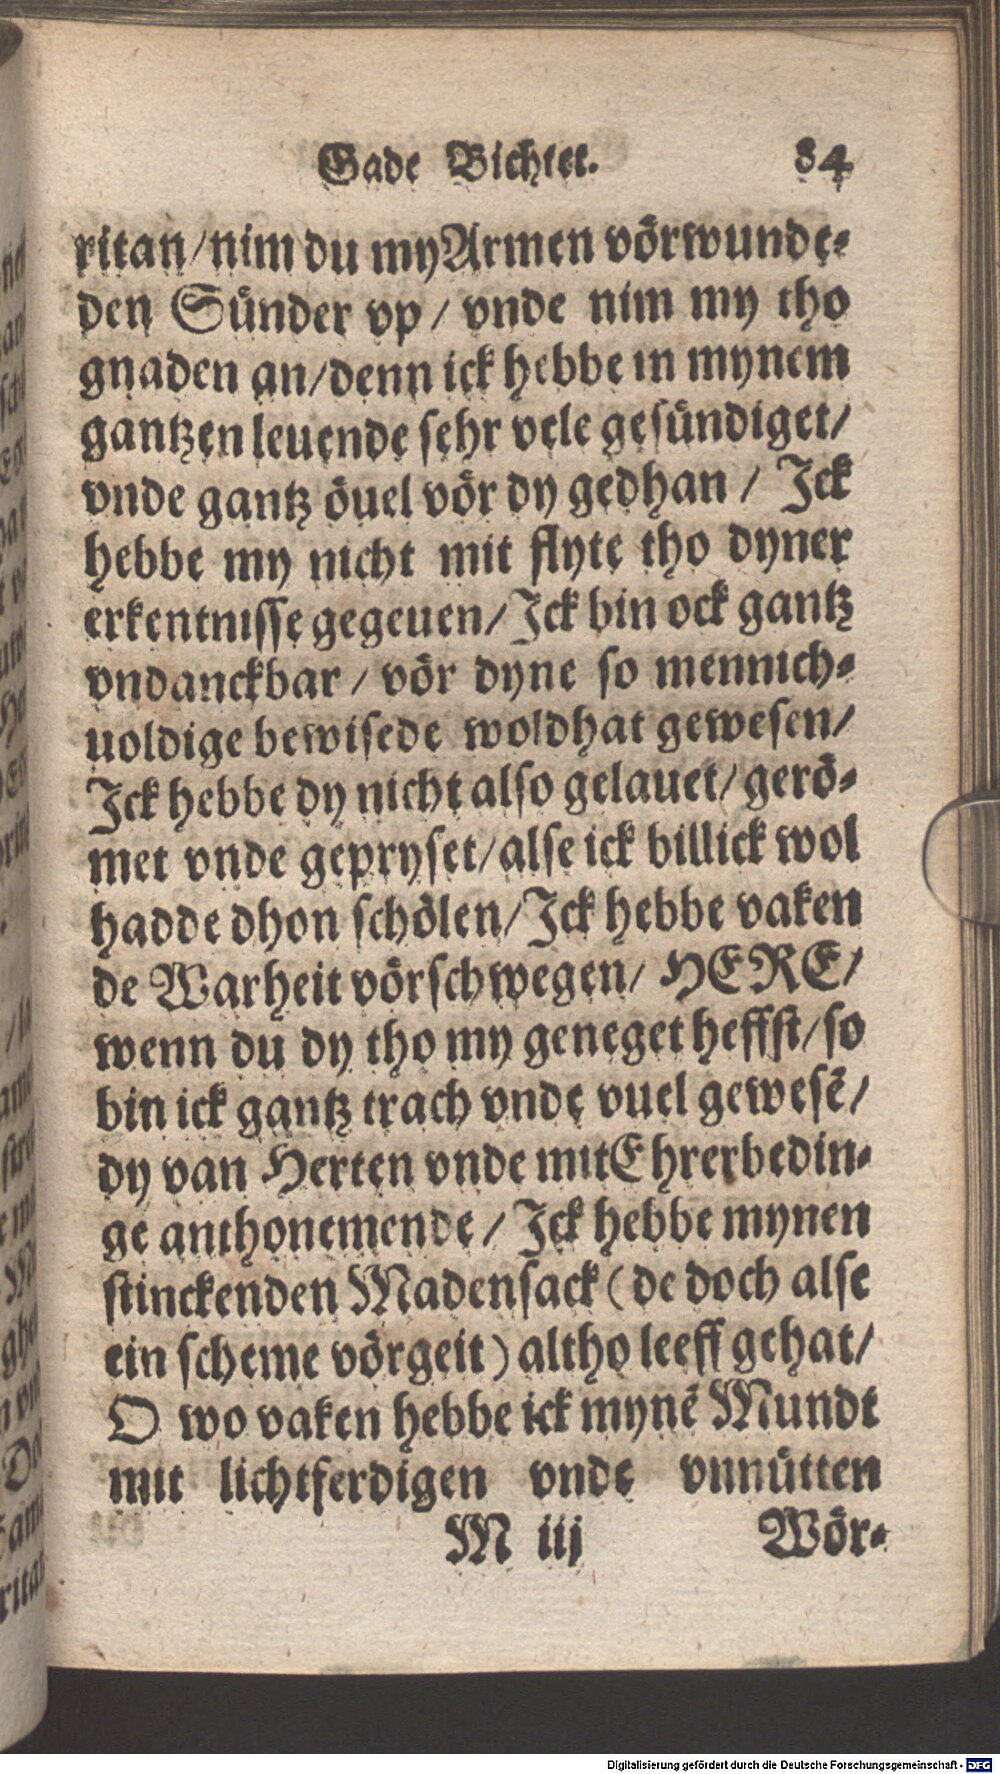 Gade Bichtet. 84
ritan/nim du my Armen vörwunde-
den Sünder vp/ vnde nim my tho
gnaden an/denn ick hebbe in mynem
gantzen leuende sehr vele gesündiget/
vnde gantz öuel vör dy gedhan / Ick
hebbe my nicht mit flyte tho dyner
erkentnisse gegeuen/Ick bin ock gantz
vndanckbar / vör dyne so mennich-
uoldige bewisede woldhat gewesen/
Ick hebbe dy nicht also gelauet/gerö-
met vnde gepryset/alse ick billick wol
hadde dhon schölen/Ick hebbe vaken
de Warheit vörschwegen/ HERE/
wenn du dy tho my geneget heffst/so
bin ick gantz trach vnde vuel gewesē/
dy van Herten vnde mit Ehrerbedin-
ge anthonemende/ Ick hebbe mynen
stinckenden Madensack (de doch alse
ein scheme vörgeit) altho leeff gehat/
O wo vaken hebbe ick mynē Mundt
mit lichtferdigen vnde vnnütten
M iij Wör-
Digitalisierung gefördert durch die Deutsche Forschungsgemeinschaft - DFG